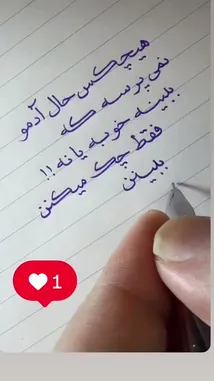 هیچکس حال آدمو
نمی پرسه که
ببینه خوبه یا نه !!
فقط چک میکنن
ببینن
1